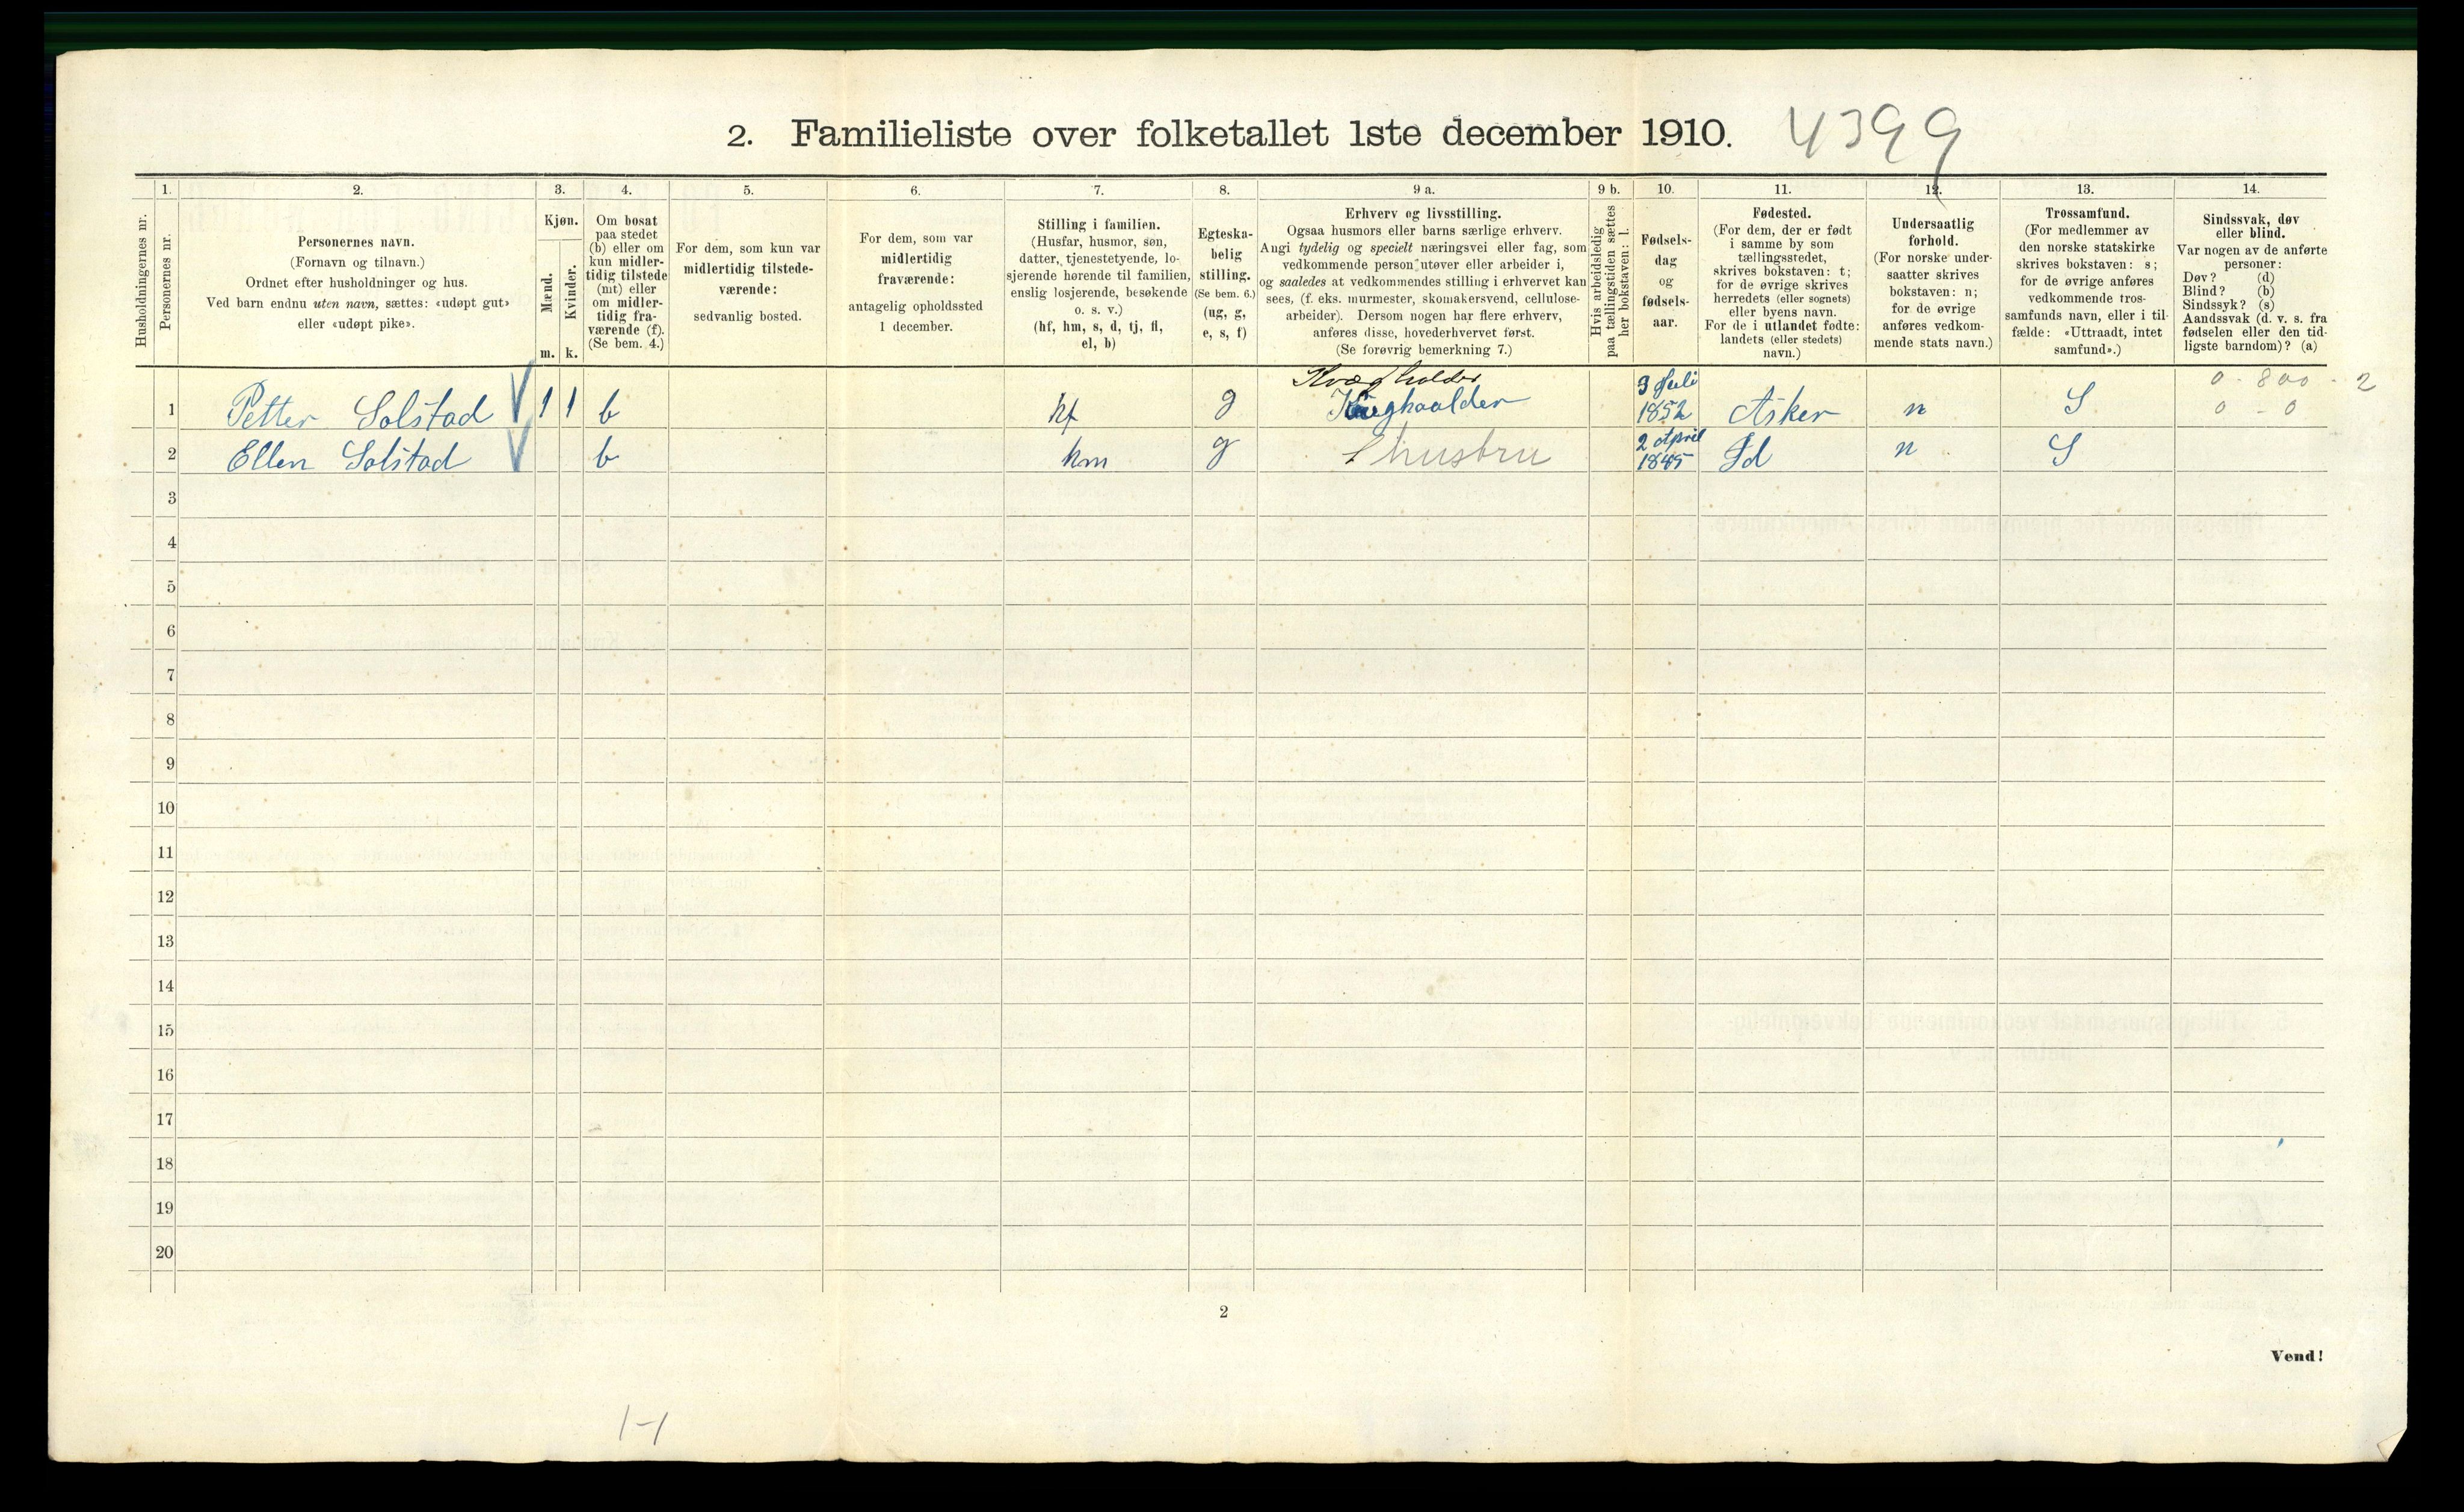 2. Familieliste over folketallet 1ste december 1910. 4399
1. 2. 3. 4. 5. 6. 7. 8. 9 a. 9 b. 10. 11. 12. 13. 14.
Husholdningernes nr.
Personernes nr.
Personernes navn.
(Fornavn og tilnavn.)
Ordnet efter husholdninger og hus.
Ved barn endnu uten navn, sættes: «udøpt gut»
eller «udøpt pike».
Kjøn.
Mænd.
Kvinder.
m. k.
Om bosat
paa stedet
(b) eller om
kun midler-
tidig tilstede
(mt) eller
om midler-
tidig fra-
værende (f).
(Se bem. 4.)
For dem, som kun var
midlertidig tilstede-
værende:
sedvanlig bosted.
For dem, som var
midlertidig
fraværende:
antagelig opholdssted
1 december.
Stilling i familien.
(Husfar, husmor, søn,
datter, tjenestetyende, lo-
sjerende hørende til familien,
enslig losjerende, besøkende
o. s. v.)
(hf, hm, s, d, tj, fl,
el, b)
Egteska-
belig
stilling.
(Se bem. 6.)
(ug, g,
e, s, f)
Erhverv og livsstilling.
Ogsaa husmors eller barns særlige erhverv.
Angi tydelig og specielt næringsvei eller fag, som
vedkommende person utøver eller arbeider i,
og saaledes at vedkommendes stilling i erhvervet kan
sees, (f. eks. murmester, skomakersvend, cellulose-
arbeider). Dersom nogen har flere erhverv,
anføres disse, hovederhvervet først.
(Se forøvrig bemerkning 7.)
Hvis arbeidsledig
paa tællingstiden sættes
her bokstaven: l.
Fødsels-
dag
og
fødsels-
aar.
Fødested.
(For dem, der er født
i samme by som
tællingsstedet,
skrives bokstaven: t;
for de øvrige skrives
herredets (eller sognets)
eller byens navn.
For de i utlandet fødte:
landets (eller stedets)
navn.)
Undersaatlig
forhold.
(For norske under-
saatter skrives
bokstaven: n;
for de øvrige
anføres vedkom-
mende stats navn.)
Trossamfund.
(For medlemmer av
den norske statskirke
skrives bokstaven: s;
for de øvrige anføres
vedkommende tros-
samfunds navn, eller i til-
fælde: «Uttraadt, intet
samfund».)
Sindssvak, døv
eller blind.
Var nogen av de anførte
personer:
Døv? (d)
Blind? (b)
Sindssyk? (s)
Aandssvak (d. v. s. fra
fødselen eller den tid-
ligste barndom)? (a)
Kvægholder 3 Juli 0 - 800 - 2
1 Petter Solstad 1 1 b hf g 1852 Asker n S 0 - 0
2 Ellen Solstad b hm g husbru 2 April 1845 Id n S
3
4
5
6
7
8
9
10
11
12
13
14
15
16
17
18
19
20
2
Vend!
1-1